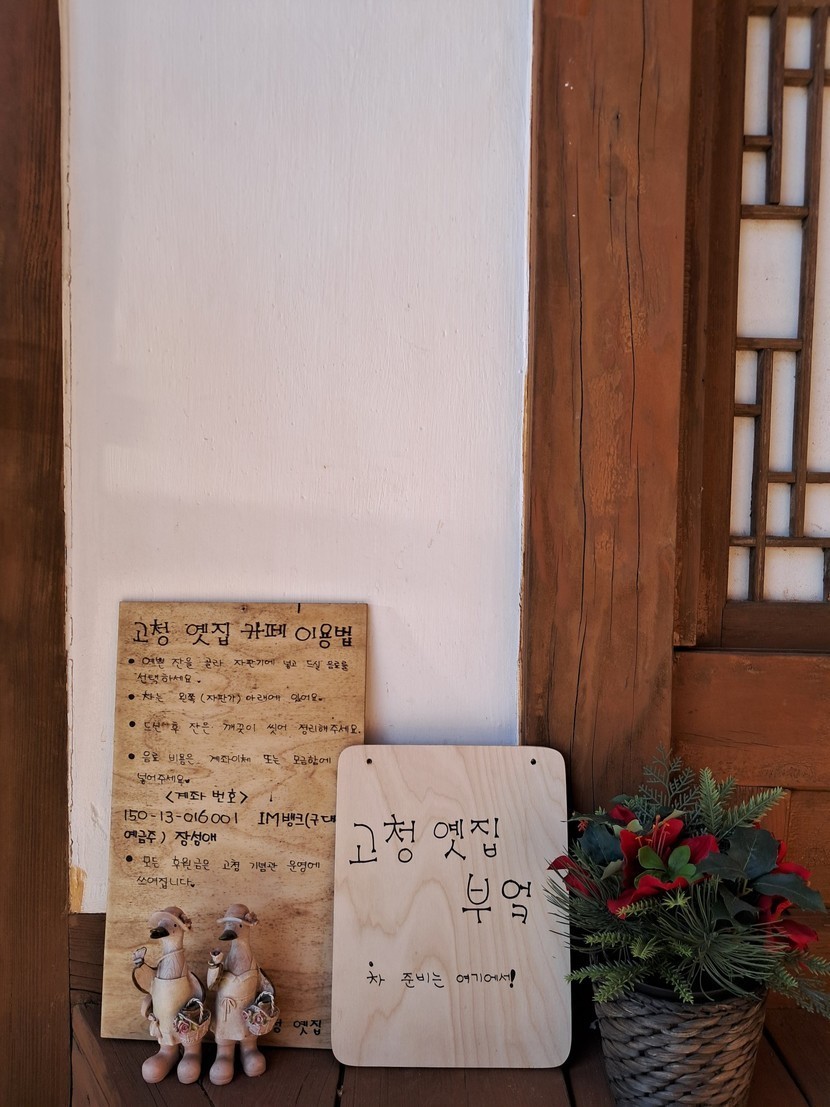 고청 옛집 카페 이용법
• 예쁜 잔을 골라 자판기에 넣고 드실 음료를
선택하세요.
• 차는 왼쪽 (자판기) 아래에 있어요.
• 드신 후 잔은 깨끗이 씻어 정리해주세요.
• 음료 비용은 계좌이체 또는 모금함에
넣어주세요.
<계좌 번호>
150-13-016001 IM뱅크(구대
예금주) 장성애
• 모든 후원금은 고청 기념관 운영에
쓰여집니다.
옛집
고청 옛집
부엌
차 준비는 여기에서!